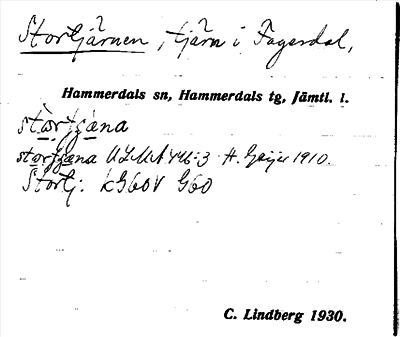 Stortjärnen, tjärn i Fagerdal,
Hammerdals sn, Hammerdals tg, Jämtl. l.
stortjæna
stortjæna ULMA 446:3 H. Geijer 1910.
Stortj: kG60V G60
C. Lindberg 1930.